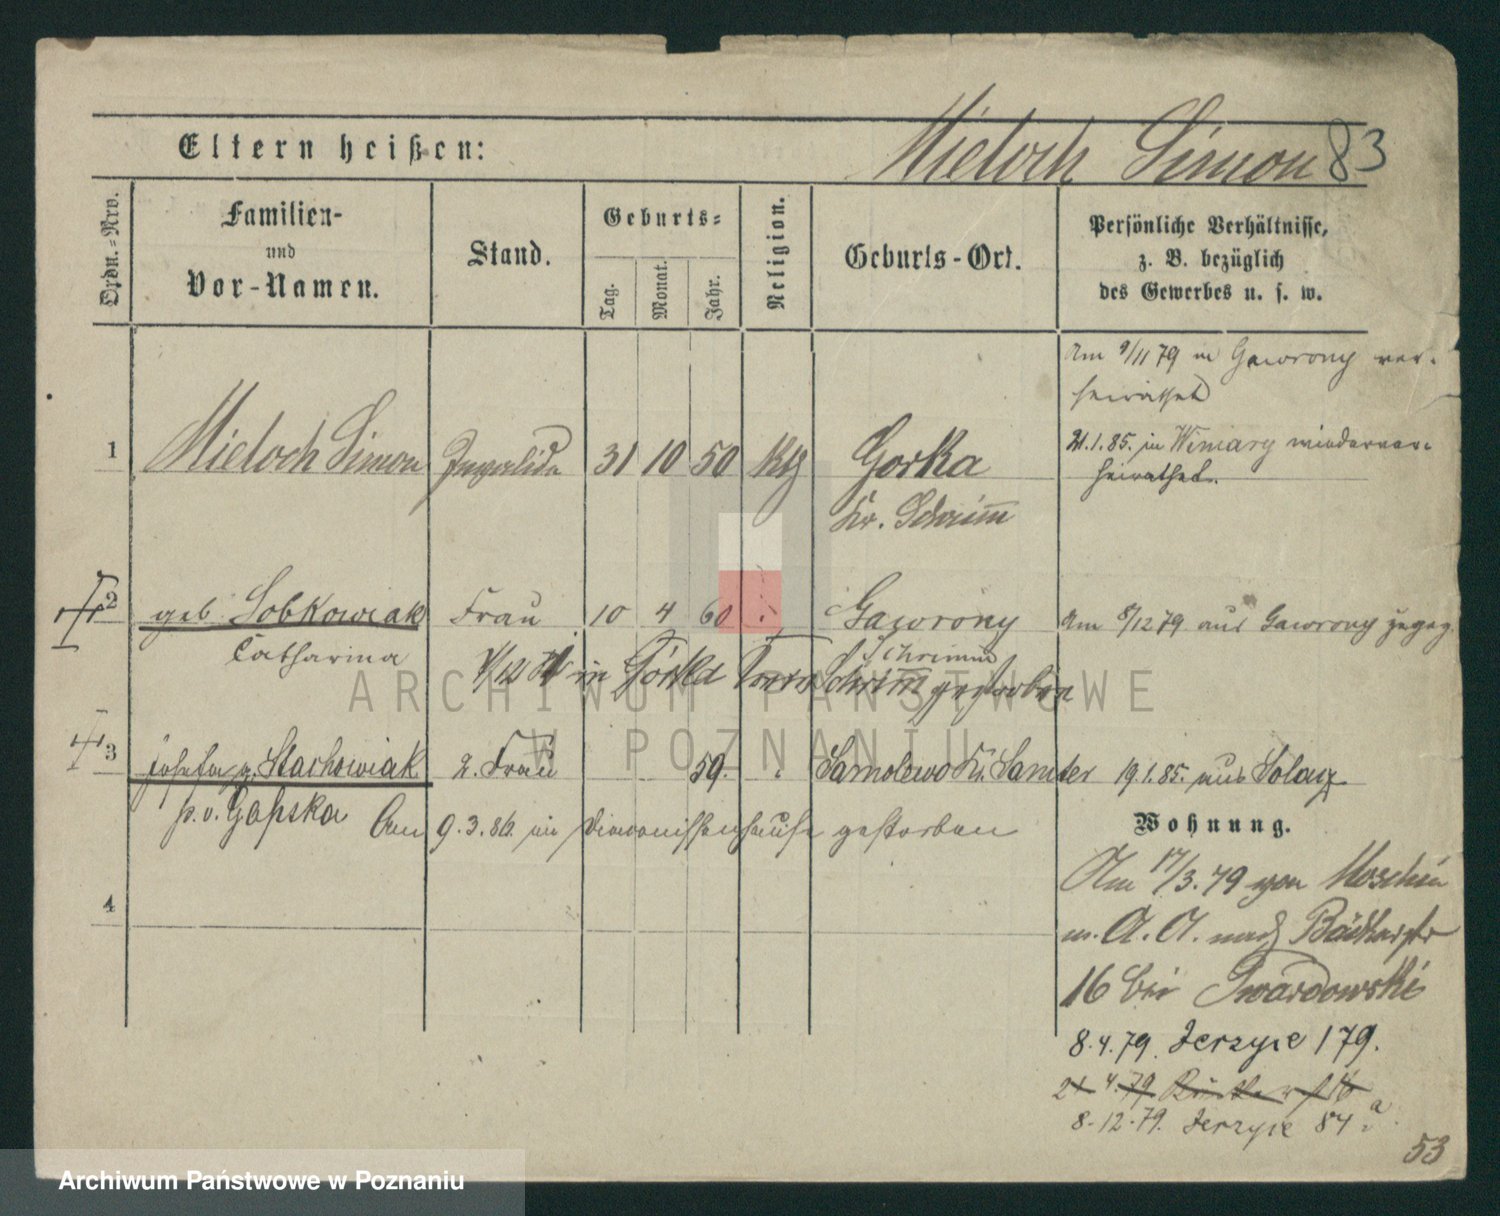 Eltern heißen:
Mieloch Simon 83
Ordn.-Nro.
Familien-
und
Vor-Namen.
Stand.
Geburts-
Tag.
Monat.
Jahr.
Religion.
Geburts-Ort.
Persönliche Verhältnisse,
z. B. bezüglich
des Gewerbes u. s. w.
Am 9/11 79 in Gaworony ver-
heirathet
1 Mieloch Simon Invalide 31 10 50 kth Gorka
Kr. Schrimm
21.1.85. in Winiary wiederver-
heirathet.
2 geb Sobkowiak Frau 10 4 60 Gaworony
Catharina
Schrimm
Am 8/12 79 aus Gaworony zugez
in Górka Schrimm gestorben
3 Josefa g. Stachowiak 2. Frau 59. Samolewo Kr. Samter 19.1.85. aus Solacz
p. v. Gapska Am 9.3.86. im Diakonissenhause gestorben
Wohnung.
4
Am 17/3.79 von Moschin
m. A. A. nach Bäckerstr
16 bei Twardowski
8.4.79. Jerzyce 179.
4.79
8.12.79. Jerzyce 84 a
53
ARCHIWUM PAŃSTWOWE
W POZNANIU
Archiwum Państwowe w Poznaniu